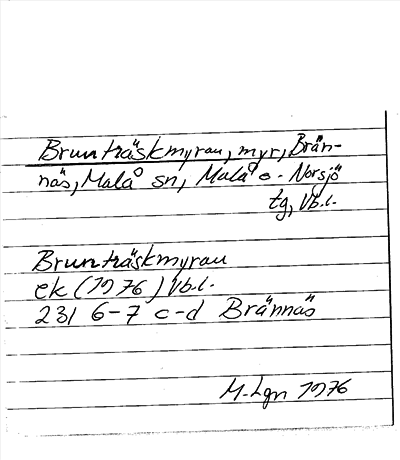 Brunträskmyran, myr, Brän-
näs, Malå sn, Malå o. Norsjö
tg, Vb.l.
Brunträskmyran
ek (1976) Vb.l.
23I 6-7 c-d Brännäs
M.Lgn 1976